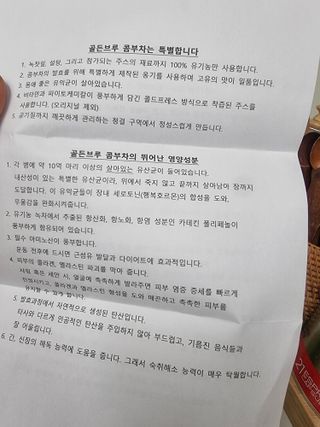 골든브루 콤부차는 특별합니다
1. 녹찻잎, 설탕, 그리고 첨가되는 주스의 재료까지 100% 유기농만 사용합니다.
2. 콤부차의 발효를 위해 특별하게 제작된 옹기를 사용하여 고유의 맛이 일품입니다.
3. 몸에 좋은 유익균이 살아있습니다.
4. 비타민과 파이토케미칼이 풍부하게 담긴 콜드프레스 방식으로 착즙된 주스를
사용합니다. (오리지널 제외)
5. 공기질까지 깨끗하게 관리하는 청결 구역에서 정성스럽게 만듭니다.
골든브루 콤부차의 뛰어난 영양성분
1. 각 병에 약 10억 마리 이상의 살아있는 유산균이 들어있습니다.
내산성이 있는 특별한 유산균이라, 위에서 죽지 않고 끝까지 살아남아 장까지
도달합니다. 이 유익균들이 장내 세로토닌(행복호르몬)의 합성을 도와,
우울감을 완화시켜줍니다.
2. 유기농 녹차에서 추출된 항산화, 항노화, 항염 성분인 카테킨 폴리페놀이
풍부하게 함유되어 있습니다.
3. 필수 아미노산이 풍부합니다.
운동 전후에 드시면 근성유 발달과 다이어트에 효과적입니다.
4. 피부의 콜라겐, 엘라스틴 파괴를 막아 줍니다.
샤워 혹은 세안 시, 얼굴에 촉촉하게 발라주면 피부 염증 증세를 빠르게
진정시키고, 콜라겐과 엘라스틴 형성을 도와 매끈하고 촉촉한 피부를
유지할 수 있게 합니다.
5. 발효과정에서 자연적으로 생성된 탄산입니다.
타사와 다르게 인공적인 탄산을 주입하지 않아 부드럽고, 기름진 음식들과
잘 어울립니다.
6. 간, 신장의 해독 능력에 도움을 줍니다. 그래서 숙취해소 능력이 매우 탁월합니다.